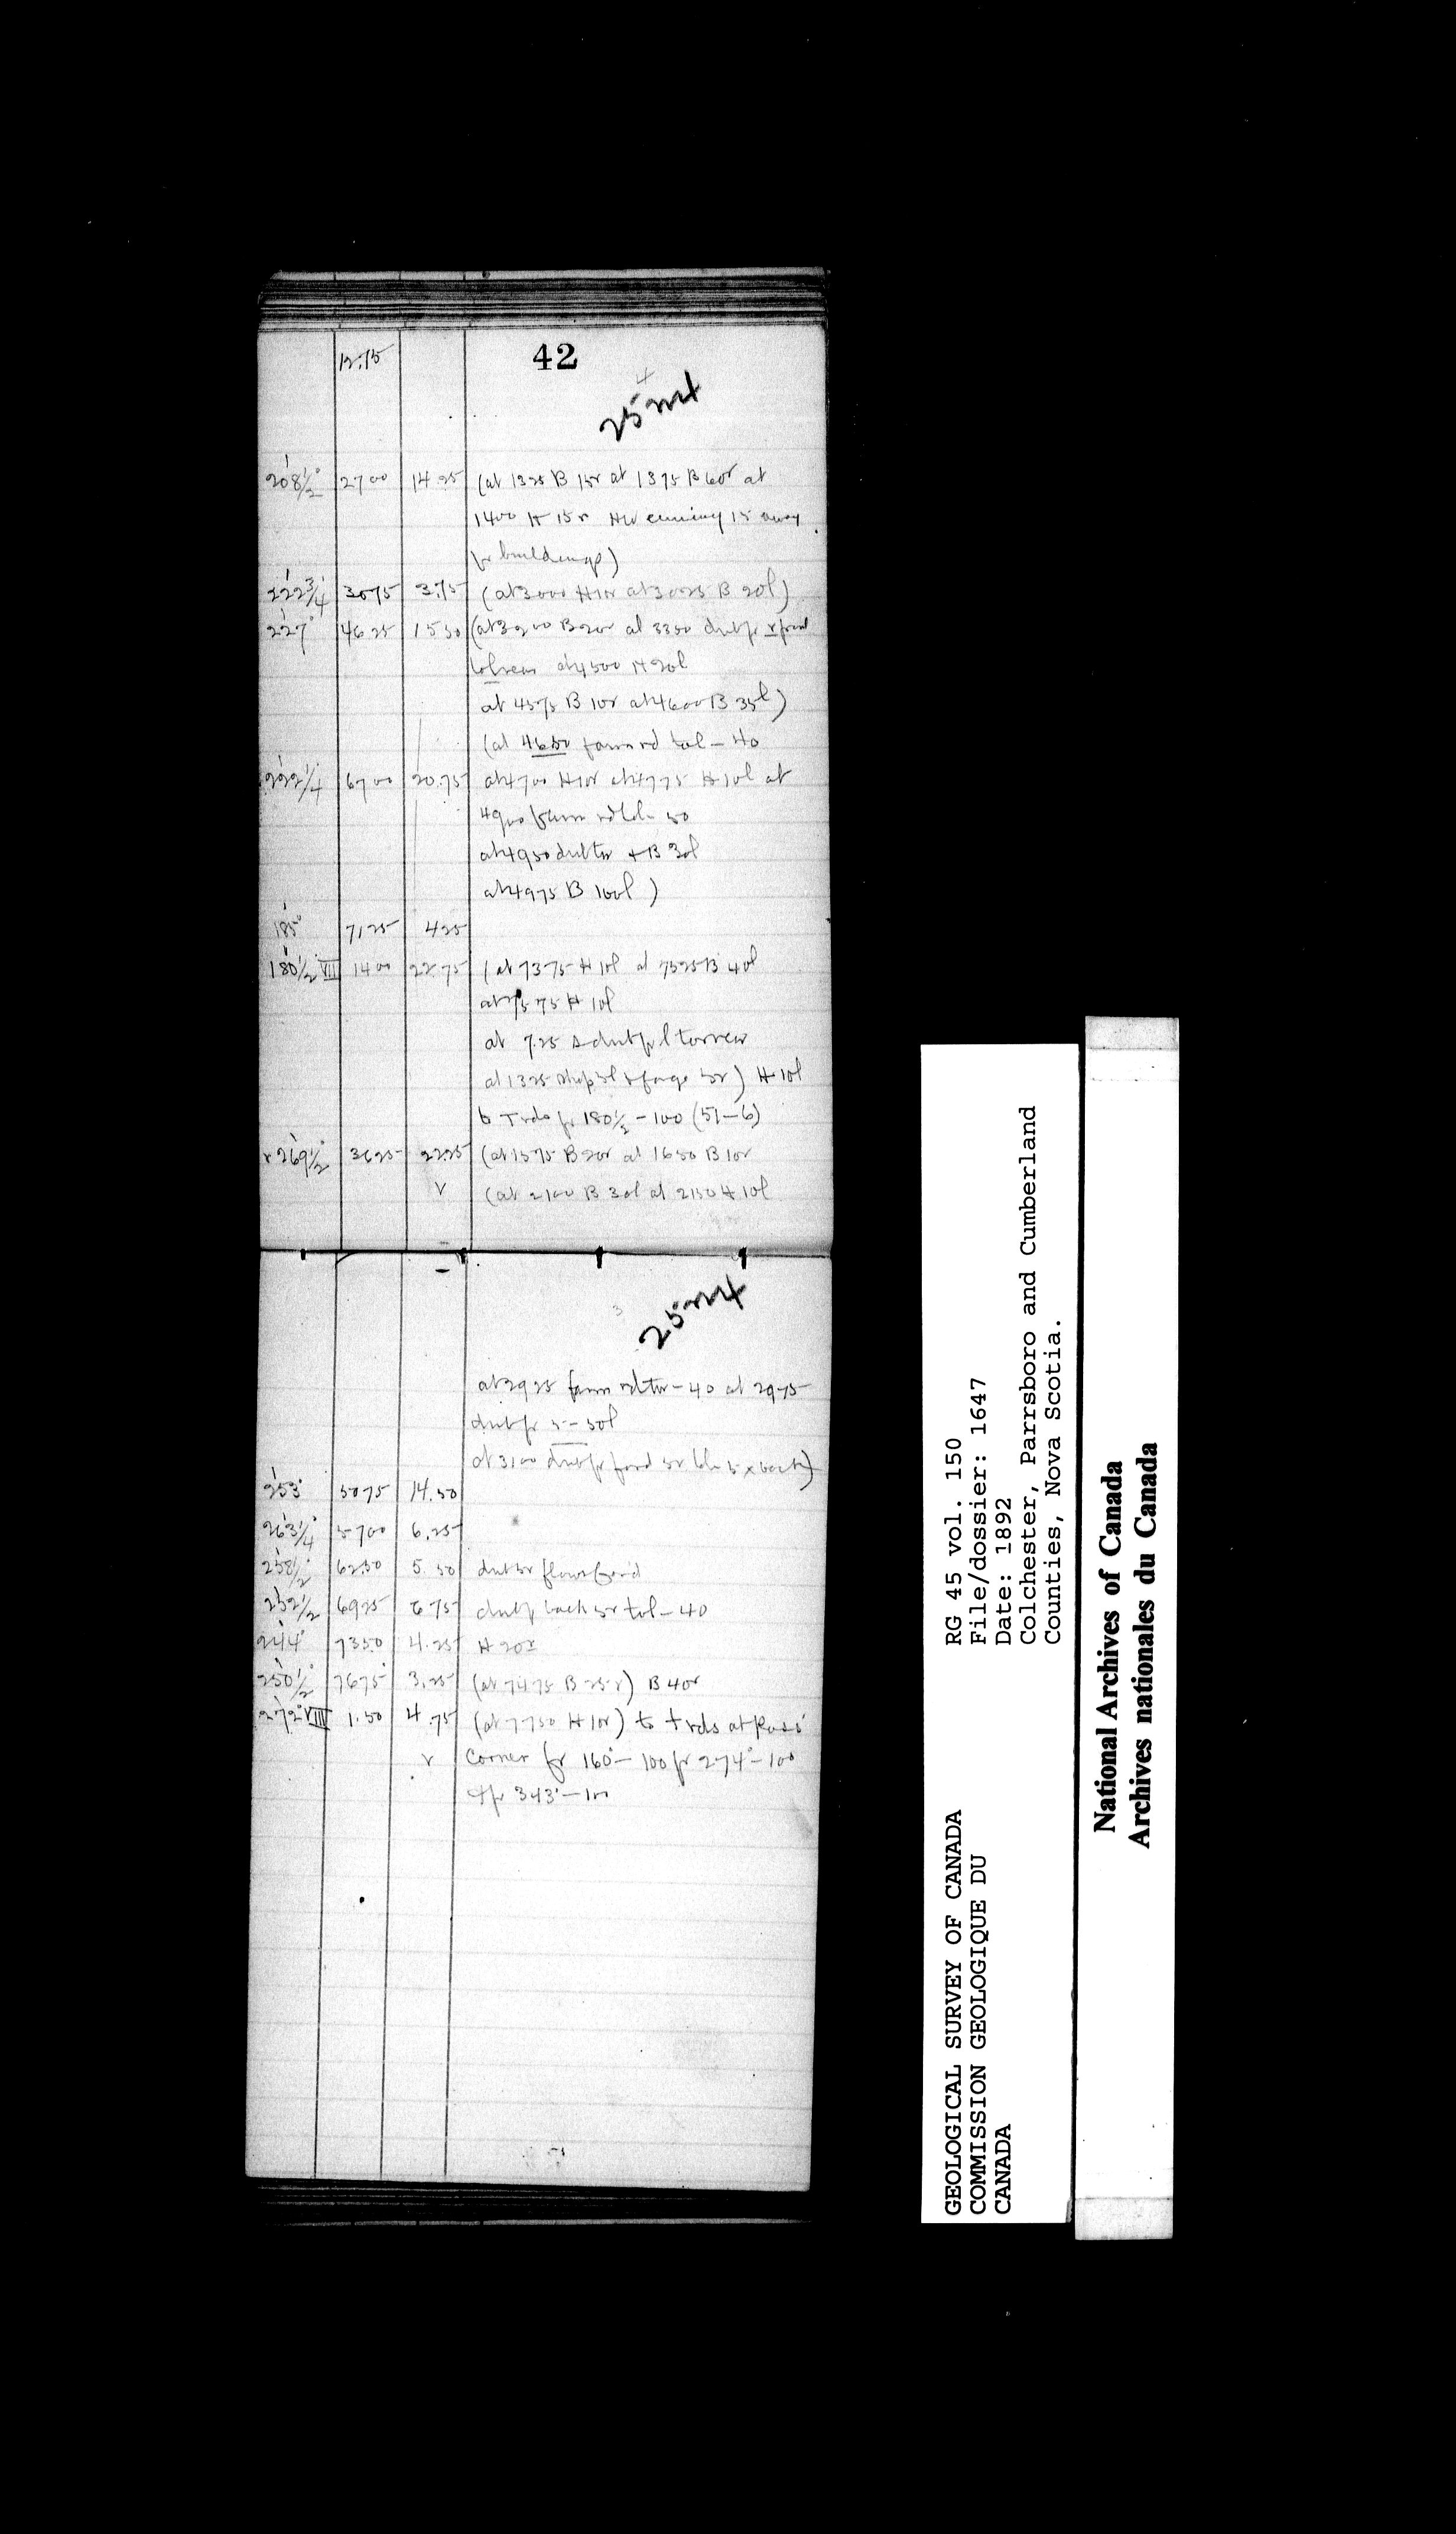 42
12.75
208½° 2700 14.25 (at 1325 B 15r at 1375 B 60r at
1400 H 15r HW running 15 away
fr buildings)
222¾ 3075 3.75 (at 3000 H 10r at 3025 B 20l)
227° 4625 15.50 (at 3200 B 20r at 3350 fr
at 4500 H 20l
at 4575 B 10r at 4600 B 35l)
(at 4650 farm rd tol - 40
222¼ 6700 20.75 at 4700 H 10r at 4775 H 10l at
4900 farm rd tol - 50
at 4950 + B 30l
at 4975 B 100l)
185° 7125 4.25
180½ VII 1400 22.75 (at 7375 H 10l at 7525 B 40l
at 7575 H 10l
at 7.25
at 1325 shop 5l & forge 5r) H 10l
to T rds fr 180½ - 100 (51-6)
269½° 3625 22.25 (at 1575 B 20r at 1650 B 10r
(at 2100 B 30l at 2150 H 10l
at 2925 farm rd tor - 40 at 2975
fr 5 - 50l
at 3100
253° 5075 14.50
263¼° 5700 6.25
258½° 6250 5.50
252½ 6925 6.75 back 5r tol - 40
244° 7350 4.25 H 20r
250½° 7675 3.25 (at 7475 B 25r) B 40r
272° VIII 1.50 4.75 (at 7750 H 10r) to + rds at
Corner fr 160° - 100 fr 274° - 100
& fr 343° - 100
GEOLOGICAL SURVEY OF CANADA
COMMISSION GEOLOGIQUE DU
CANADA
RG 45 vol. 150
File/dossier: 1647
Date: 1892
Colchester, Parrsboro and Cumberland
Counties, Nova Scotia.
National Archives of Canada
Archives nationales du Canada